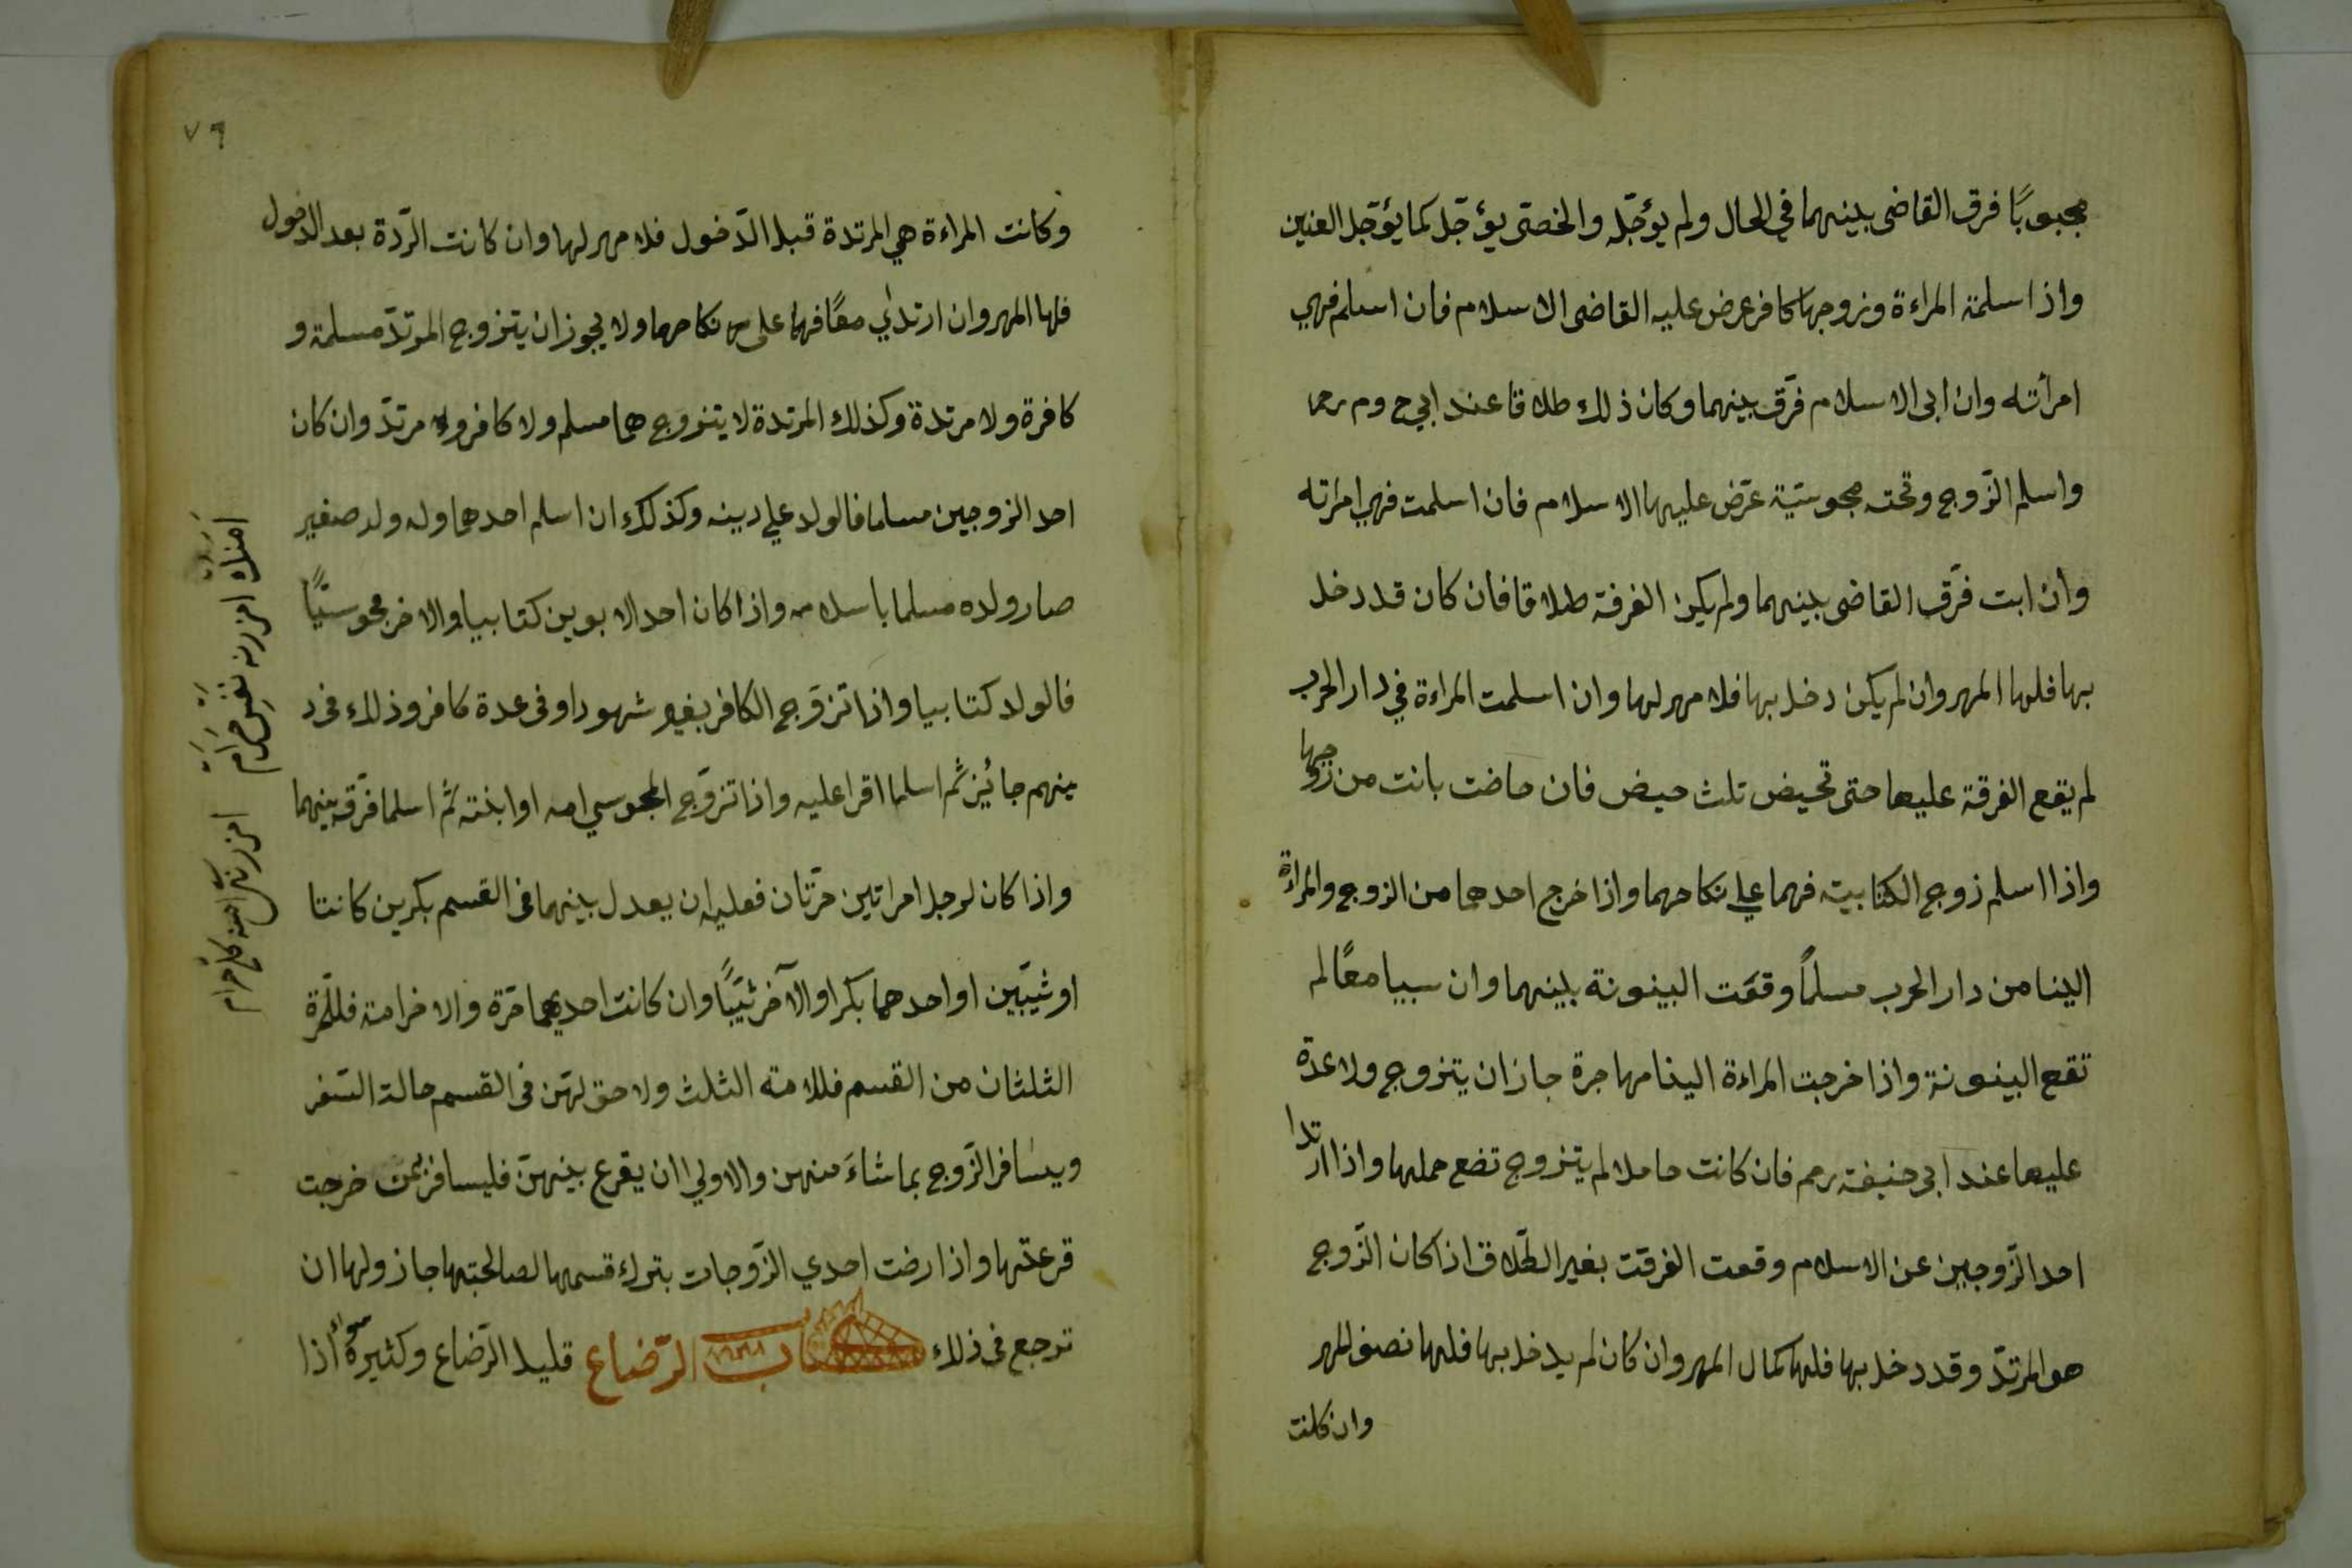 مجبوبًا فرق القاضى بينهما في الحال ولم يؤجّله والخصىّ يؤجّل كما يؤجّل العنين
واذا سلمة المراءة وزوجها كافر عرض عليه القاضى الاسلام فان اسلم فهي
امرأته وان ابى الاسلام فرّق بينهما وكان ذلك طلاقا عند ابي ح وم رحما
واسلم الزّوج وتحته مجوسيّة عرّض عليها الاسلام فان اسلمت فهي امرأته
وان ابت فرّق القاضى بينهما ولم يكن الفرقة طلاقا فان كان قد دخل
بها فلها المهر وان لم يكن دخل بها فلا مهر لها وان اسلمت المراءة في دار الحرب
لم يقع الفرقة عليها حتى تحيض ثلث حيض فان حاضت بانت من زوجها
واذا اسلم زوج الكتابيته فهما علي نكاحهما واذا خرج احدهما من الزوج والمراءة
الينا من دار الحرب مسلمًا وقعت البينونة بينهما وان سبيا معًا لم
تقع البينونة واذا خرجت المراءة الينا مهاجرة جاز ان يتزوج ولا عدة
عليها عند ابى حنيفة رحم فان كانت حاملا لم يتزوج تضع حملها واذا ارتدا
احد الزّوجين عن الاسلام وقعت الفرقت بغير الطّلاق اذا كان الزّوج
هو المرتدّ وقد دخل بها فلها كمال المهر وان كان لم يدخل بها فلها نصف المهر
وان كانت
٧٦
وكانت المراءة هي المرتدة قبل الدّخول فلا مهر لها وان كانت الرّدّة بعد الدخول
فلها المهر وان ارتدي معًا فهما على نكاحهما ولا يجوز ان يتزوج المرتدّ مسلمة و
كافرة ولا مرتدة وكذلك المرتدة لا يتزوج هما مسلم ولا كافر ولا مرتدّ وان كان
احد الزوجين مسلما فالولد علي دينه وكذلك ان اسلم احدهما وله ولد صغير
صار ولده مسلما باسلامه واذا كان احد الابوين كتابيا والاخر مجوسيًّا
فالولد كتابيا واذا تزوّج الكافر بغير شهود او في عدة كافر وذلك فى د
ينهم جائيز ثم اسلما اقرا عليه واذا تزوّج المجوسي امه او ابنته ثم اسلما فرّقه بينهما
واذا كان لرجل امراتين حرّتان فعليه ان يعدل بينهما فى القسم بكرين كانتا
او ثيّبين او احدهما بكرا والآخر ثيّبًا وان كانت احديهما حرّة والاخر امة فللحرّة
الثلثان من القسم فللامته الثلث ولا حق لهنّ فى القسم حالة السّفر
ويسافر الزّوج بما شاءَ منهن والاولي ان يقرع بينهنّ فليسافر بمن خرجت
قرعتها واذا رضت احدي الزّوجات بترك قسمها لصالحبتها جاز ولها ان
ترجع فى ذلك كتاب الرّضاع قليل الرّضاع وكثيره سواء اذا